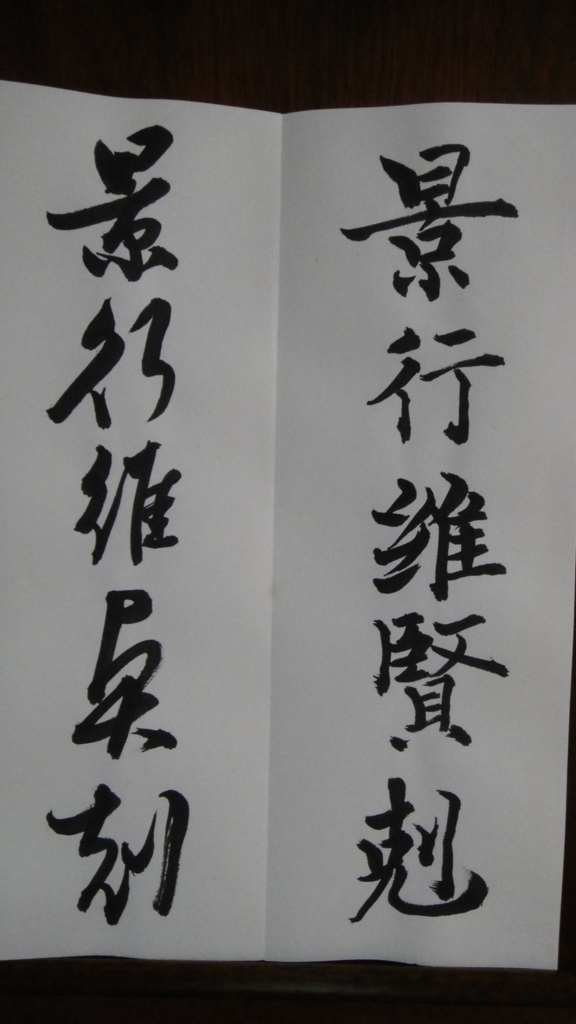 景行維賢剋
景行維賢剋